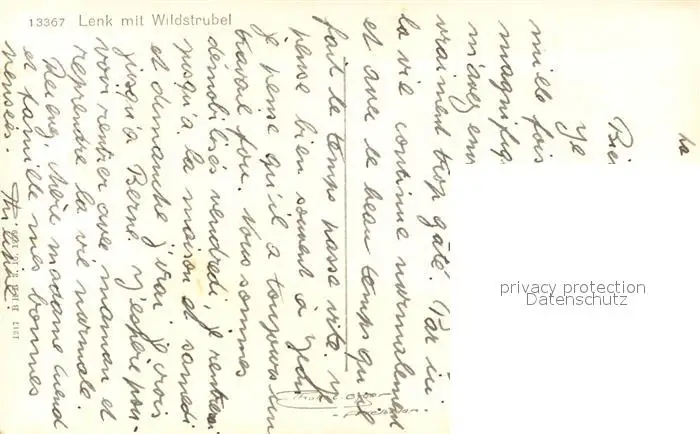 13367 Lenk mit Wildstrubel
le
Bie
Je
mille fois
magnifiq
m'avez env
vraiment trop gâté. Par ici
la vie continue normalement
et avec le beau temps qu'il
fait le temps passe vite. Je
pense bien souvent à
je pense qu'il a toujours un
travail fou. Nous sommes
démobilisés vendredi, je rentrerai
jusqu'à la maison et samedi
et dimanche j'irai je crois
jusqu'à Berne. J'espère pou-
voir rentrer avec maman et
reprendre la vie normale.
Recevez, chère madame Wend
et famille mes bonnes
pensées.
privacy protection
Datenschutz